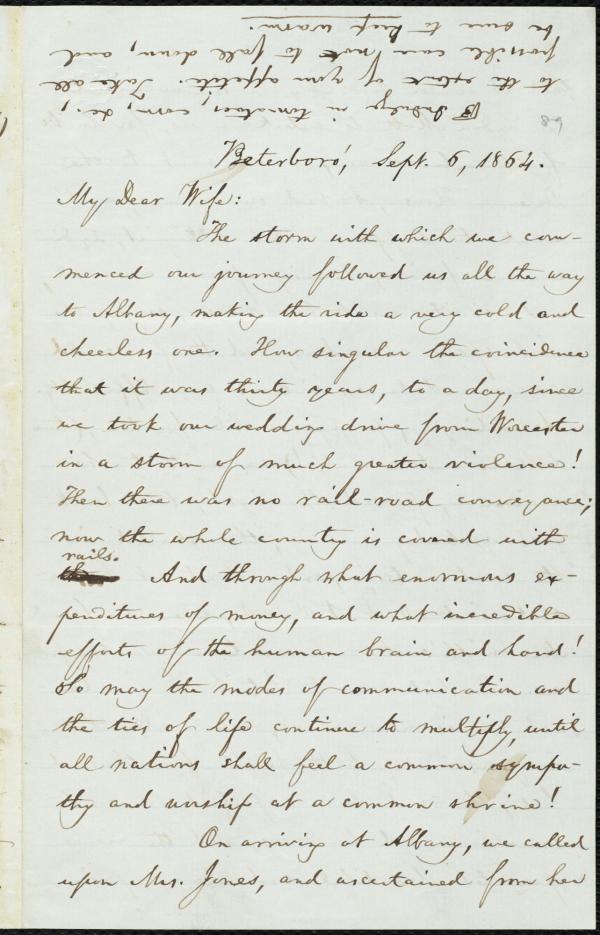 ☞ Indulge in tomatoes, corn, &c.,
to the extent of your appetite. Take all
possible care not to fall down, and
be sure to keep warm.
89
Peterboro', Sept. 6, 1864.
My Dear Wife:
The storm with which we com-
menced our journey followed us all the way
to Albany, making the ride a very cold and
cheerless one. How singular the coincidence
that it was thirty years, to a day, since
we took our wedding drive from Worcester
in a storm of much greater violence!
Then there was no rail-road conveyance;
now the whole country is covered with
rails.
And through what enormous ex-
penditures of money, and what incredible
efforts of the human brain and hand!
So may the modes of communication and
the ties of life continue to multiply, until
all nations shall feel a common sympa-
thy and worship at a common shrine!
On arriving at Albany, we called
upon Mrs. Jones, and ascertained from her